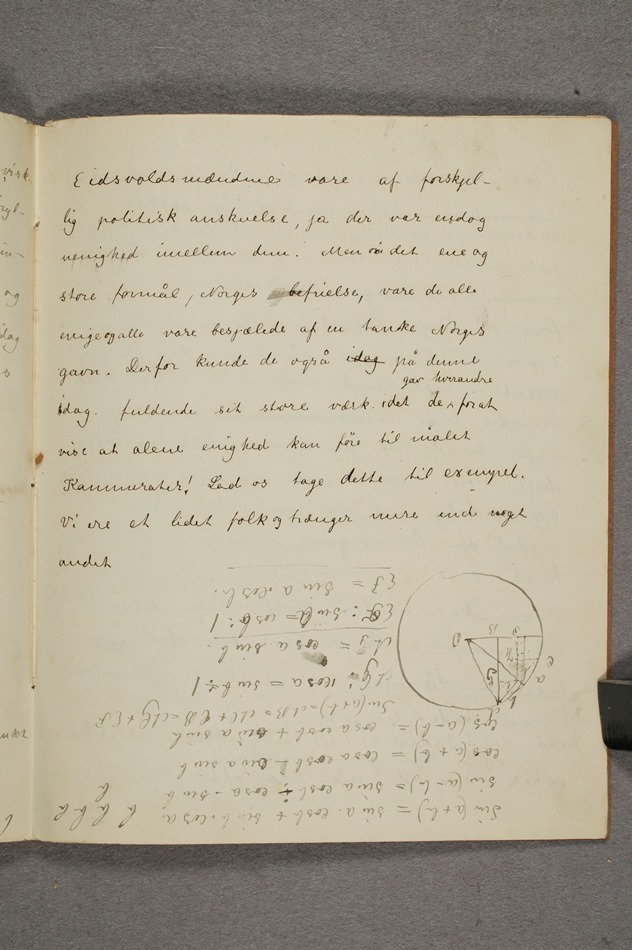 Eidsvoldsmændene vare af forskjel-
lig politisk anskuelse, ja der var endog
uenighed imellem dem. Men i det ene og
store formål, Norges befrielse, vare de alle
enige og alle vare besjælede af en tanke Norges
gavn. Derfor kunde de også idag på denne
gav hverandre
idag. fuldende sit store værk. idet de forat
vise at alene enighed kan føre til målet
Kammerater! Lad os tage dette til exempel.
Vi ere et lidet folk og trænger mere end noget
andet
sin (a+b) = sin a. cos b + sin b. cos a
sin (a-b) = sin a cos b ÷ cos a. sin b
cos (a+b) = cos a cos b - sin a sin b
cos (a-b) = cos a cos b + sin a sin b
: cos a = sin b : 1
= cos a. sin b
: sin a = cos b : 1
= sin a. cos b.